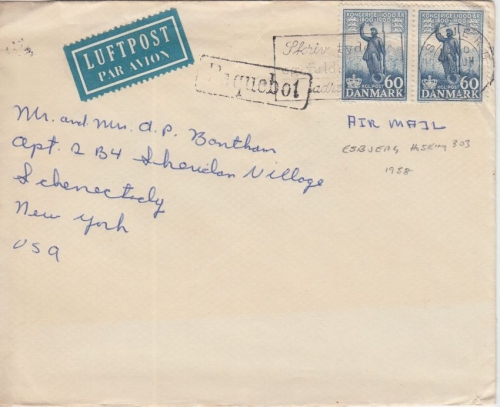 LUFTPOST
PAR AVION
Paquebot
Skriv tyd
fulds
adre
KONGERIGE I 1000 ÅR
KONGERIGE I 1000 ÅR
60
DANMARK
60
DANMARK
Mr. and Mrs. A. P. Bontham
Apt. 2 B4 Sheridan Village
Schenectady
New York
USA
AIR MAIL
ESBJERG 303
1958